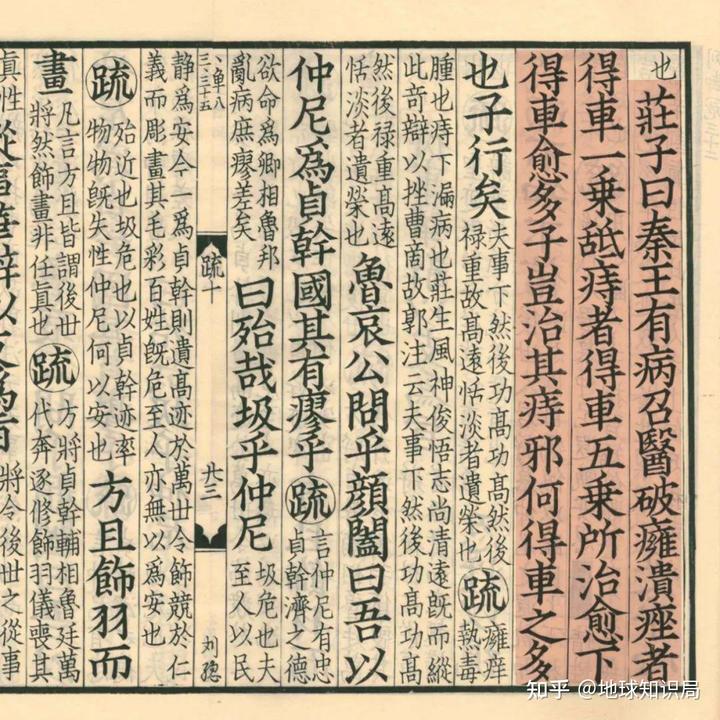 也莊子曰秦王有病召醫破癰潰痤者
得車一乗舐痔者得車五乗所治愈下
得車愈多子豈治其痔邪何得車之多
也子行矣
夫事下然後功髙功髙然後
祿重故髙遠恬淡者遺榮也
疏
癰痤
熱毒
腫也痔下漏病也莊生風神俊悟志尚清遠既而縱
此奇辯以挫曹啇故郭注云夫事下然後功髙功髙
然後祿重髙遠
恬淡者遺榮也
魯哀公問乎顔闔曰吾以
仲尼爲貞幹國其有瘳乎
疏
言仲尼有忠
貞幹濟之德
欲命爲卿相魯邦
亂病庶瘳差矣
曰殆哉圾乎仲尼
圾危也夫
至人以民
疏十
廿三
静爲安今一爲貞幹則遺髙迹於萬世令飾競於仁
義而彫畫其毛彩百姓既危至人亦無以爲安也
疏
殆近也圾危也以貞幹迹率
物物既失性仲尼何以安也
方且飾羽而
畫
凡言方且皆謂後世
將然飾畫非任眞也
疏
方將貞幹輔相魯廷萬
代奔逐修飾羽儀喪其
眞性
從事華辭以支爲旨
將令後世之從事
知乎 @地球知识局